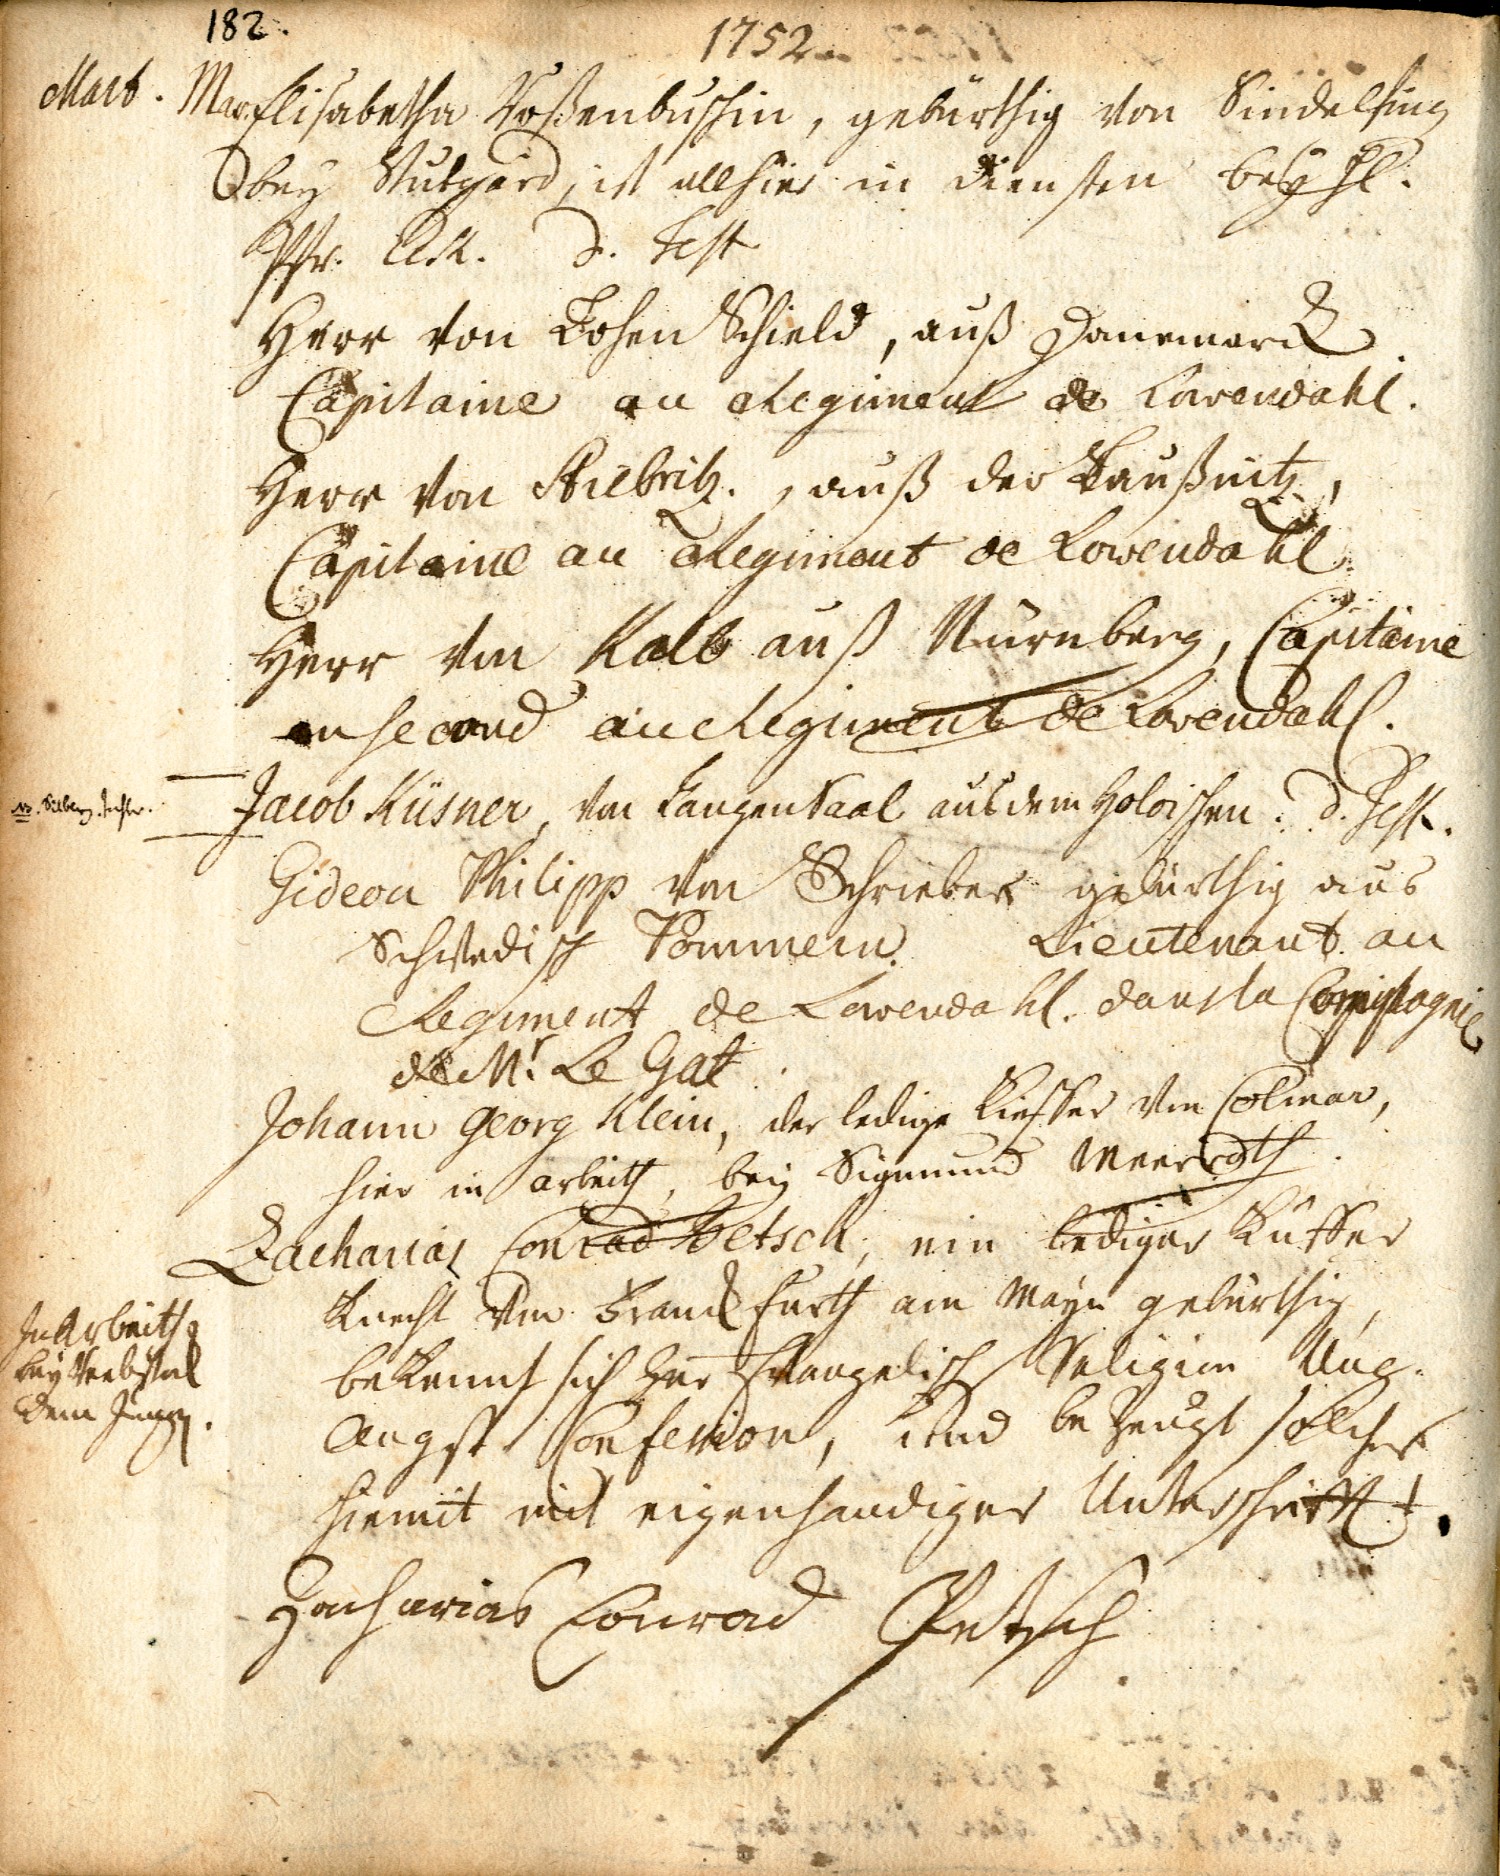 182.
1752.
Mart. Mar. Elisabetha Roßenbuschin, gebürthig von Sindelfing
bey Stutgard, ist allhier in diensten bey HE.
Pfr. d. Test
Herr von Hohen Schield, auß Danemarck
Capitaine au Regiment de Lowendahl.
Herr von Stiebritz, auß der Laußnitz,
Capitaine au Regiment de Lowendahl.
Herr von Kalb auß Nürnberg, Capitaine
en second au Regiment de Lowendahl.
Jacob Küsner, von Langenthaal aus dem d. Test.
Gideon Philipp von Schrieber gebürthig aus
Schwedisch Pommern. Lieutenant au
Regiment de Lowendahl. dans la Compagnie
de Mr. Le Gat.
Johann Georg Klein, der ledige Kieffer von Colmar,
hier in arbeith, bey Sigmund
Zacharias Conrad Petsch, ein lediger Küffer
Knecht von Franckfurth am Mayn gebürthig,
bekennt sich zur Evangelisch Religion Ung.
Augsp. Confession, und bezeugt solches
hiemit mit eigenhändiger Unterschrifft.
In Arbeith
bey
dem Jung.
Zacharias Conrad Petsch